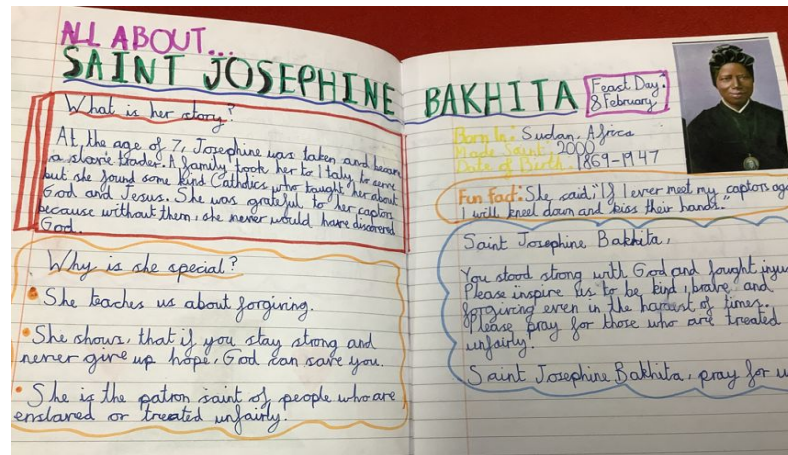 ALL ABOUT...
SAINT JOSEPHINE BAKHITA
What is her story?
At the age of 7, Josephine was taken and became
a slave trader. A family took her to Italy to serve
but she found some kind Catholics who taught her about
God and Jesus. She was grateful to her captors
because without them, she never would have discovered
God.
Why is she special?
She teaches us about forgiving.
She shows, that if you stay strong and
never give up hope, God can save you.
She is the patron saint of people who are
enslaved or treated unfairly.
Feast Day:
8 February
Born In: Sudan, Africa
Made Saint: 2000
Date of Birth: 1869-1947
Fun Fact: She said, "If I ever meet my captors
I will kneel down and kiss their hands."
Saint Josephine Bakhita,
You stood strong with God and fought
Please inspire us to be kind, brave and
forgiving even in the hardest of times.
Please pray for those who are treated
unfairly.
Saint Josephine Bakhita, pray for